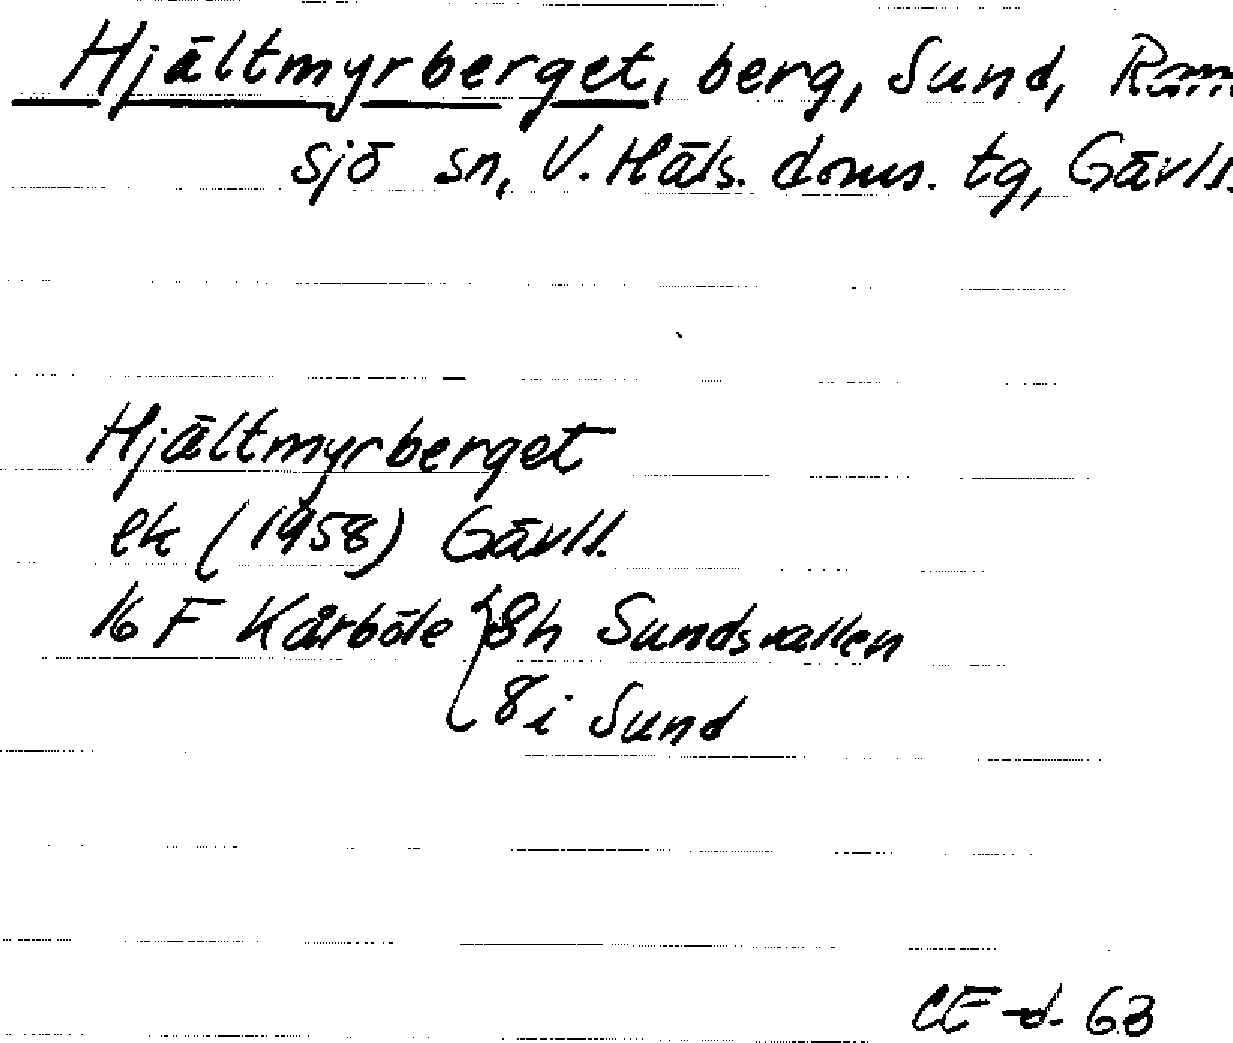 Hjältmyrberget, berg, Sund, Ram
sjö sn, V. Häls. doms. tg, Gävls.
Hjältmyrberget
ek (1958) Gävls.
16 F Kårböle { 8h Sundsvallen
8i Sund
CE-d. 63